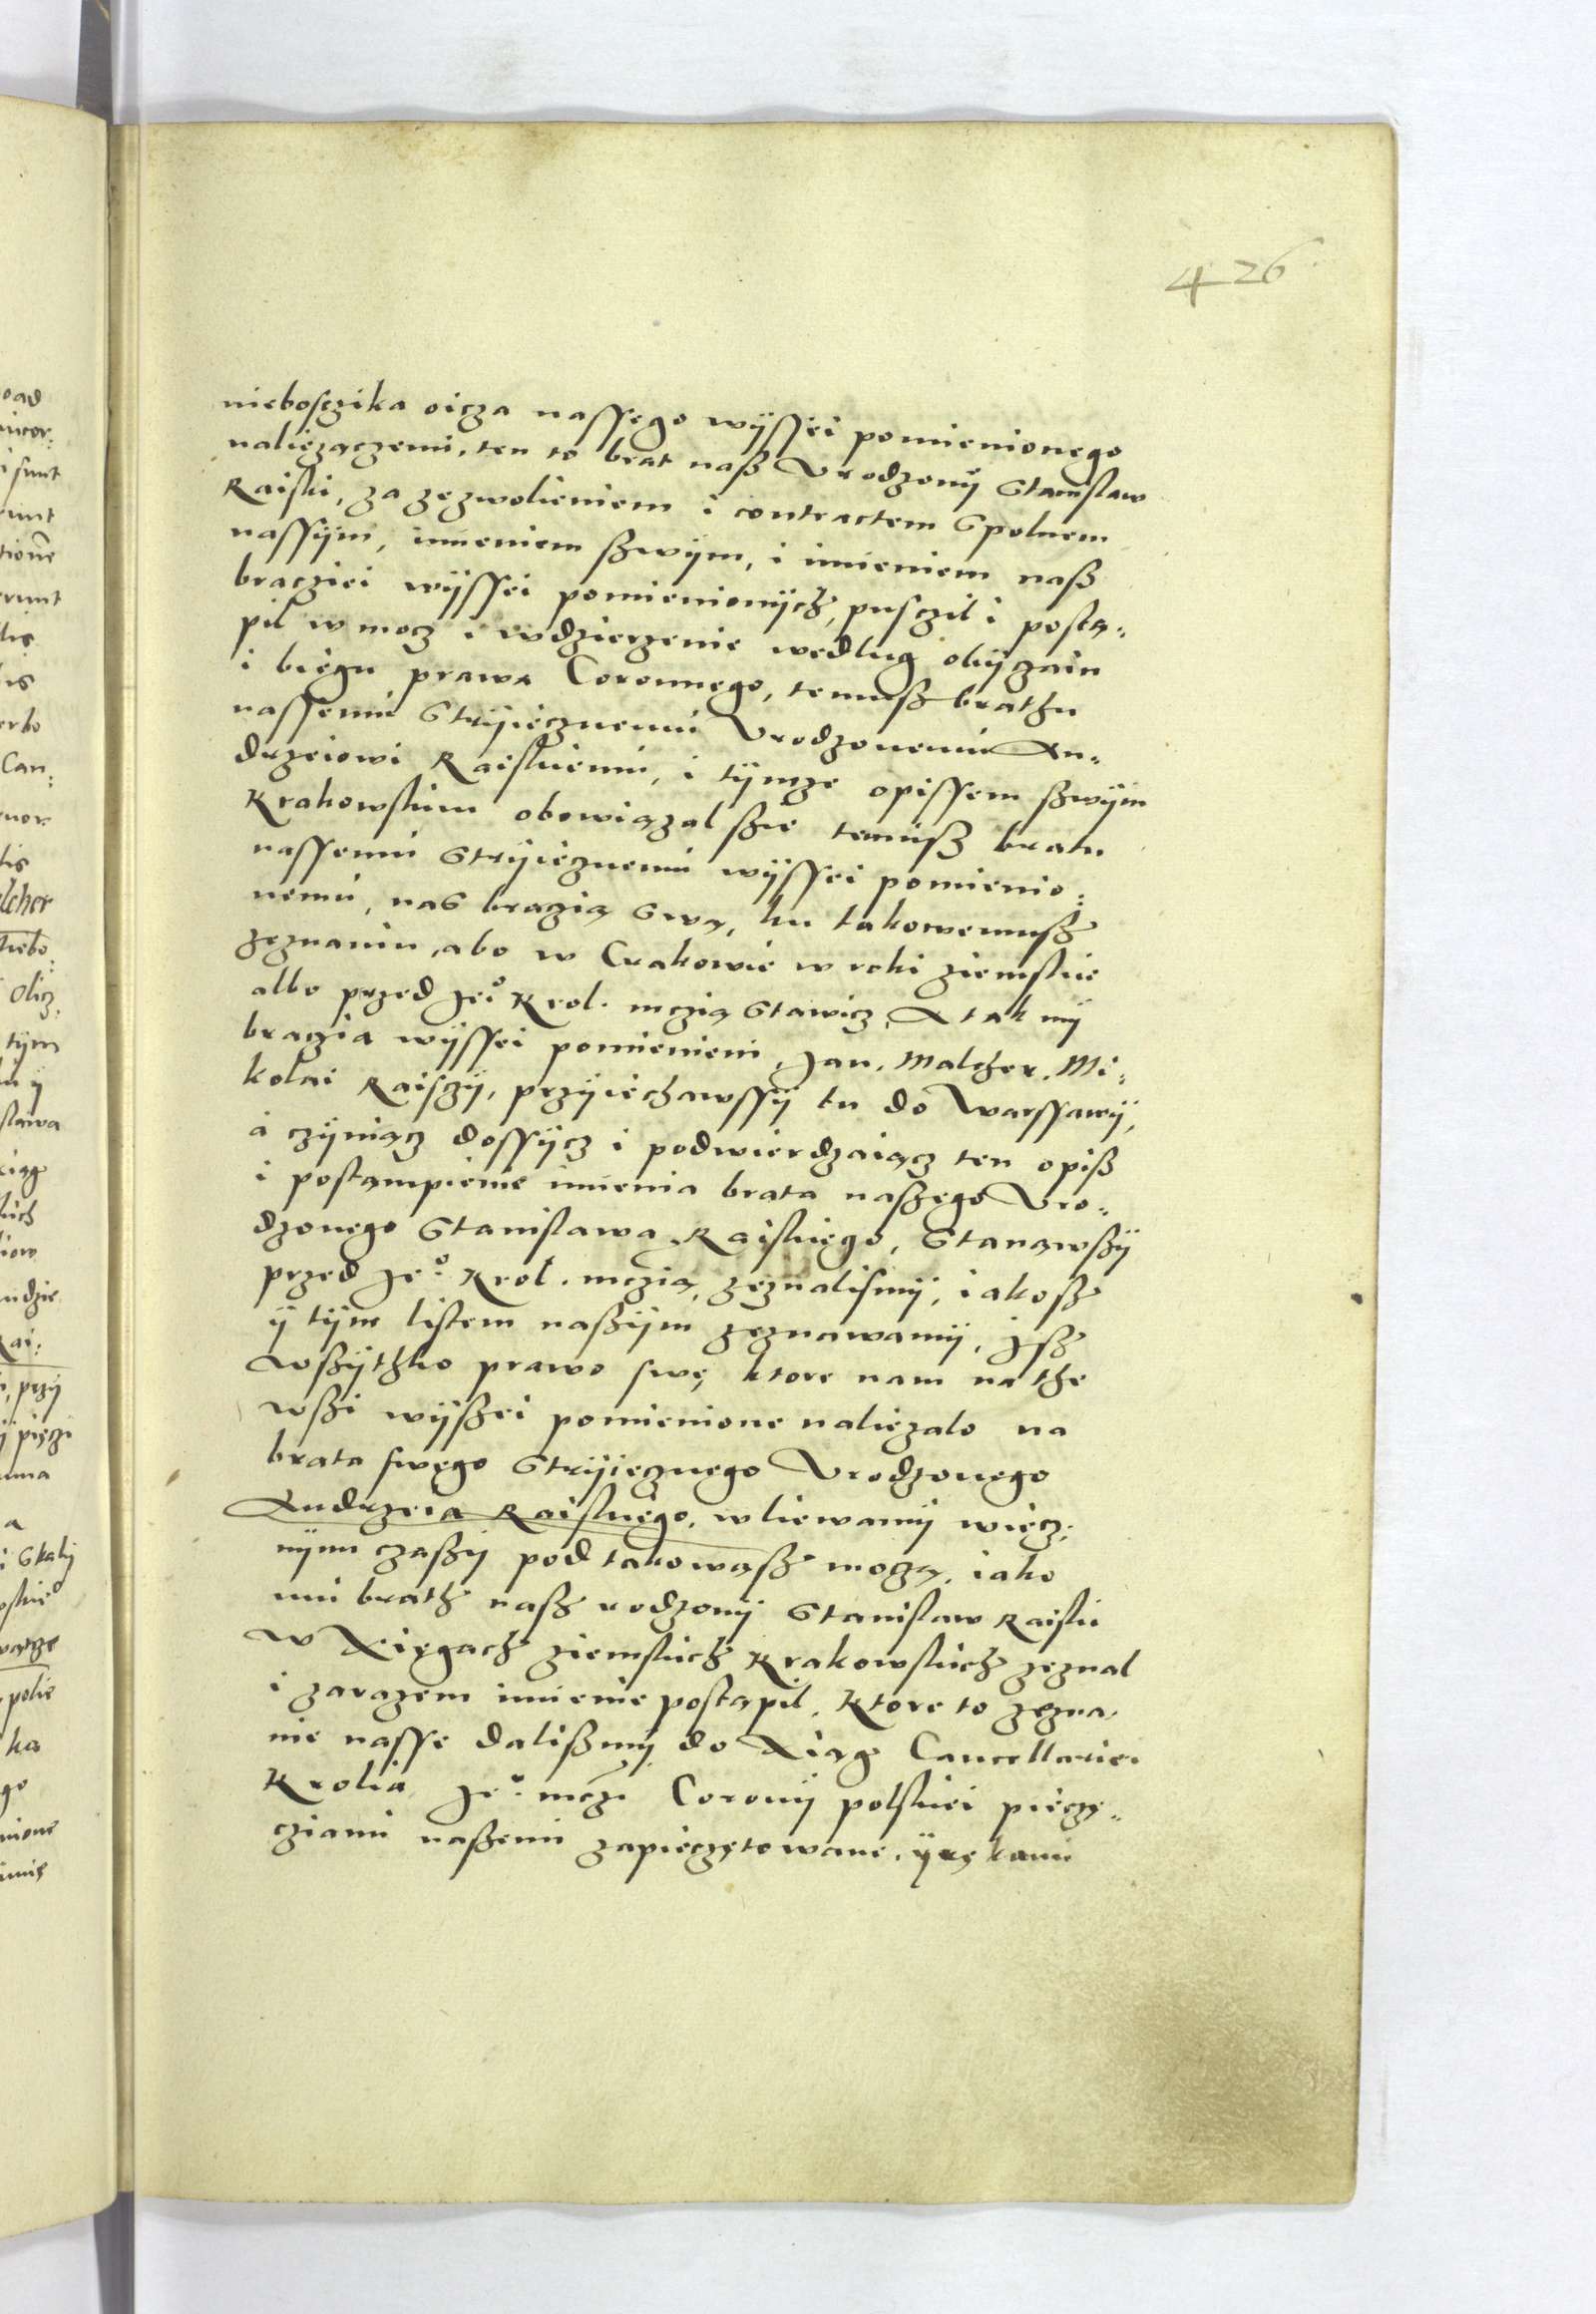 426
nieboszika oicza nassego wÿssei pomienionego
naliezączemi, ten to brat naß Vrodzonÿ Stanislaw
Raiski, za zezwolieniem i contractem spolnem
nassÿm, imieniem ßwÿm, i imieniem naß
bracziei wÿssei pomienionÿch, pusczil i postą-
pil w mocz i wdzierzenie wedlug obÿczaiu
i biegu prawa Coronnego, temuß brathu
nassemu Strÿiecznemu Vrodzonemu An-
drzeiowi Raiskiemu, i tÿmze opissem ßwÿm
Krakowskim obowiązal ßie temuß bratu
nassemu Strÿiecznemu wÿssei pomienio:
nemu, nas braczią swą, ku takowemuß
zeznaniu, abo w Crakowie w roki ziemskie
albo przed Jeº Krol. mczią stawicz, A tak mÿ
braczia wÿssei pomienieni, Jan, Malcher, Mi:
kolai Raisczÿ, przÿiechawssÿ tu do Warssawÿ,
a czÿniącz dossÿcz i podwierdzaiącz ten opiß
i postąmpienie imienia brata naßego Vro-
dzonego Stanislawa Raiskiego, Stanąwßÿ
przed Jeº Krol. mczią, zeznalismÿ, iakoß
ÿ tÿm listem naßÿm zeznawamÿ, Jß
wßÿthko prawo swę, ktore nam na the
wßi wÿßei pomienione naliezalo na
brata swego Strÿiecznego Vrodzonego
Andrzeia Raiskiego, wliewamÿ wiecz:
nÿmi czaßÿ pod takowąß moczą, iako
mu brath naß rodzonÿ Stanislaw Raiski
w Xięgach ziemskich Krakowskich zeznal
i zarazem imienie postąpil. Ktore to zezna-
nie nasse dalißmÿ do Xiąg Cancellariei
Krolia Jeº mczi Coronÿ polskiei pieczę-
cziami naßemi zapieczętowane, ÿ rękami